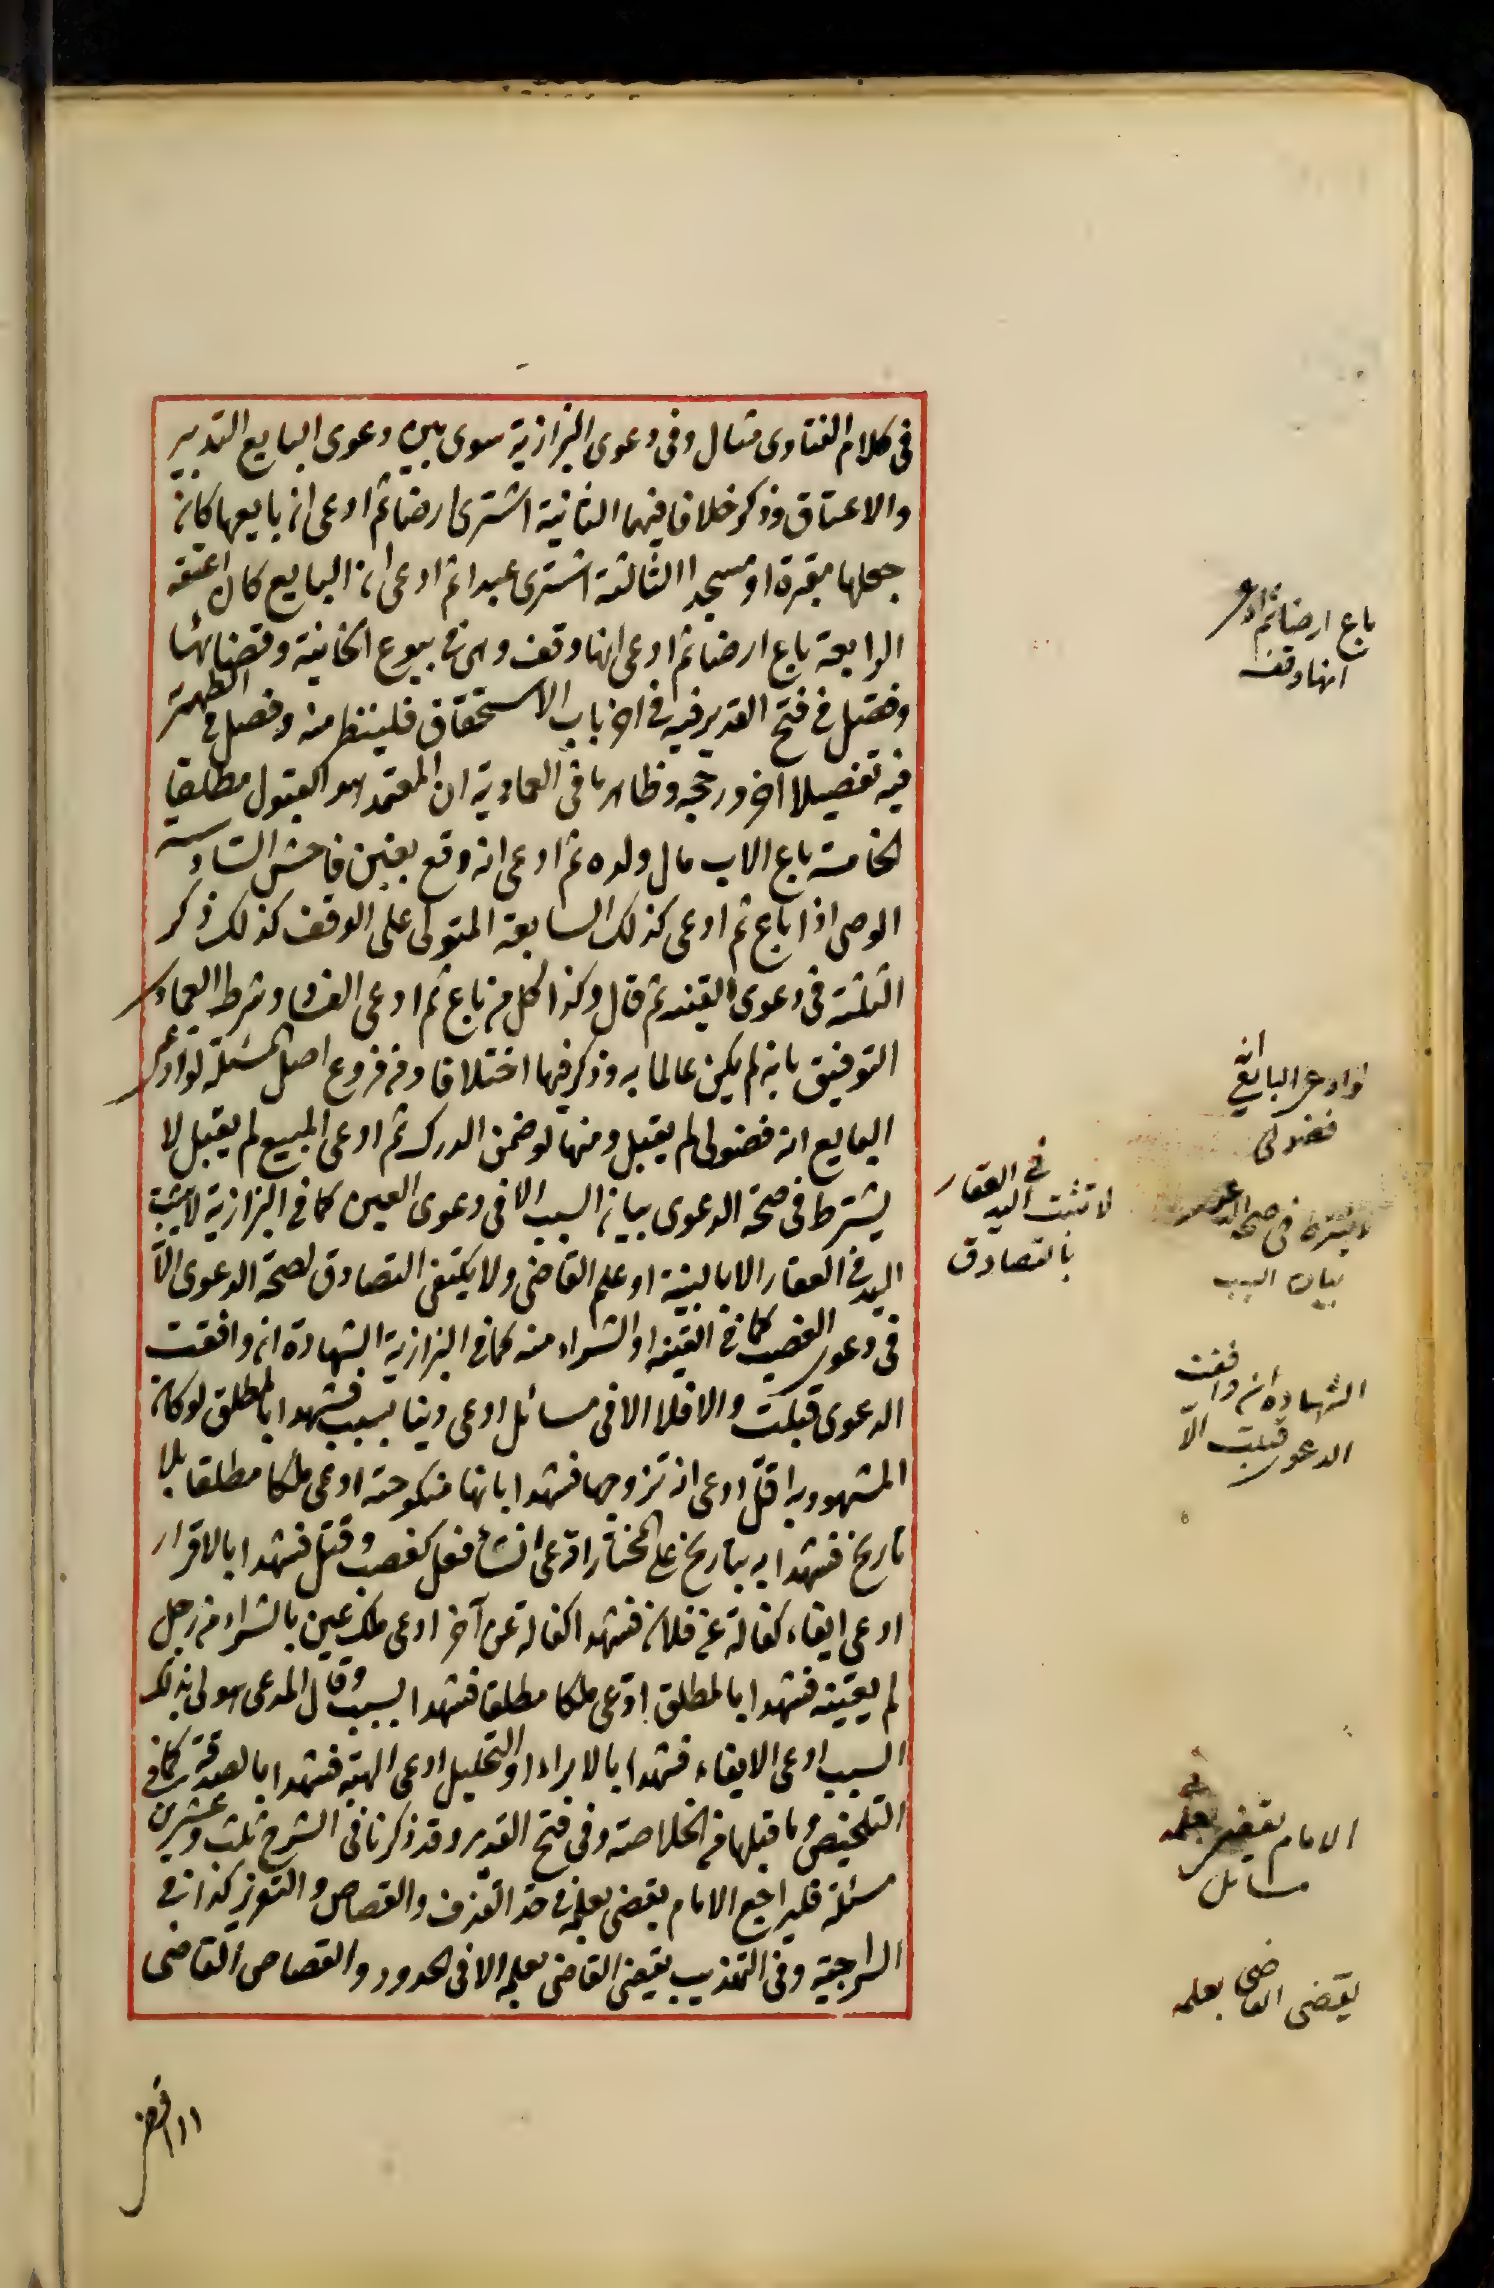 في كلام الفتاوى مثال وفي دعوى البزازية سوى بين دعوى البايع التدبير
والاعتاق وذكر خلافا فيهما الثانية اشترى ارضا ثم ادعى ان بايعها كان
جعلها مقبرة او مسجدا الثالثة اشترى عبدا ثم ادعى ان البايع كان اعتقه
الرابعة باع ارضا ثم ادعى انها وقف وهى في بيوع الخانية وقضائها
وفصل في فتح القدير فيه في اخر باب الاستحقاق فلينظر منه وفصل في الظهيرية
فيه تفصيلا اخر ورجحه وظاهر ما في العمادية ان المعتمد هو القبول مطلقا
الخامسة باع الاب مال ولده ثم ادعى انه وقع بغبن فاحش السادسة
الوصى اذا باع ثم ادعى كذلك السابعة المتولى على الوقف كذلك ذكر
الثلثة في دعوى القنية ثم قال وكذا كل من باع ثم ادعى الفساد وشرط العمادى
التوفيق بانه لم يكن عالما به وذكر فيها اختلافا ومن فروع اصل المسئلة لو ادعى
البايع انه فضولى لم يقبل ومنها لو ضمن الدرك ثم ادعى المبيع لم يقبل لا
يشترط في صحة الدعوى بيان السبب الا في دعوى العين كما في البزازية لا يثبت
اليد في العقار الا بالبينة او علم القاضى ولا يكتفى التصادق لصحة الدعوى الا
في دعوى الغصب كما في القنية او الشراء منه كما في البزازية الشهادة ان وافقت
الدعوى قبلت والا فلا الا في مسائل ادعى دينا بسبب فشهدا بالمطلق لو كان
المشهود به اقل ادعى انه تزوجها فشهدا بانها منكوحته ادعى ملكا مطلقا بلا
تاريخ فشهدا به بتاريخ على المختار ادعى انشاء فعل كغصب وقتل فشهدا بالاقرار
ادعى ايفاء كفالة عن فلان فشهدا كفالة عن آخر ادعى ملك عين بالشراء من رجل
لم يعينه فشهدا بالمطلق ادعى ملكا مطلقا فشهدا بسبب وقال المدعى هو لى بذلك
السبب ادعى الايفاء فشهدا بالابراء او التحليل ادعى الهبة فشهدا بالصدقة كما في
التلخيص وما قبلها في الخلاصة وفي فتح القدير وقد ذكرنا في الشرح ثلث وعشرين
مسئلة فليراجع الامام يقضى بعلمه في حد القذف والقصاص والتعزير كذا في
السراجية وفي التهذيب يقضى القاضى بعلمه الا في الحدود والقصاص القاضى
باع ارضا ثم ادعى
انها وقف
لو ادعى البايع انه
فضولى
لا تثبت اليد في العقار
بالتصادق
لا يشترط في صحة الدعوى
بيان السبب
الشهادة ان وافقت
الدعوى قبلت الا
الامام يقضى بعلمه في
مسائل
يقضى القاضى بعلمه